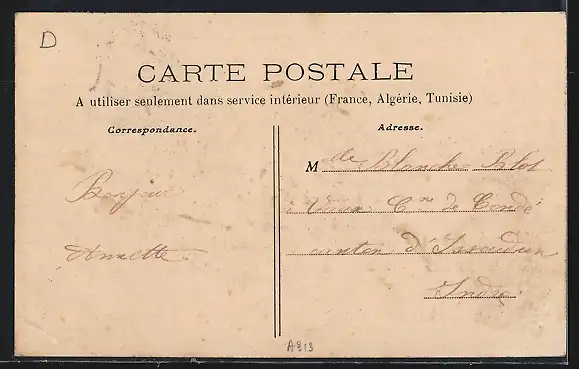 D
CARTE POSTALE
A utiliser seulement dans service intérieur (France, Algérie, Tunisie)
Correspondance.
Adresse.
Bonjour
Annette
Mde Blanche Blot
à Cne de Condé
canton d'Issoudun
Indre
A813